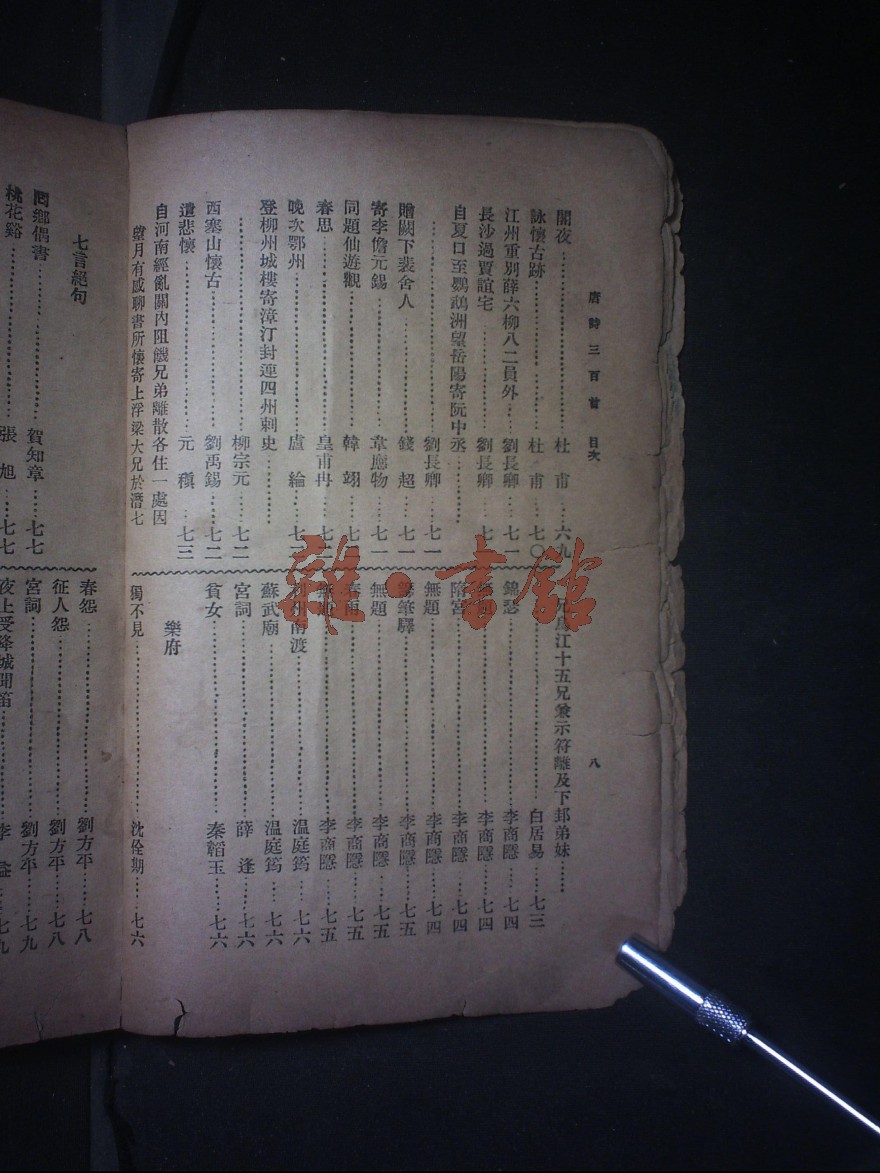 唐詩三百首 目次
八
閣夜……杜甫……六九
詠懷古跡……杜甫……七〇
江州重別薛六柳八二員外……劉長卿……七一
長沙過賈誼宅……劉長卿……七一
自夏口至鸚鵡洲望岳陽寄阮中丞……
……劉長卿……七一
贈闕下裴舍人……錢起……七一
寄李儋元錫……韋應物……七一
同題仙遊觀……韓翃……七二
春思……皇甫冉……七二
晚次鄂州……盧綸……七二
登柳州城樓寄漳汀封連四州刺史……
……柳宗元……七二
西塞山懷古……劉禹錫……七二
遣悲懷……元稹……七三
自河南經亂關內阻饑兄弟離散各住一處因
望月有感聊書所懷寄上浮梁大兄於潛七
兄烏江十五兄兼示符離及下邽弟妹……
……白居易……七三
錦瑟……李商隱……七四
無題……李商隱……七四
隋宮……李商隱……七四
無題……李商隱……七四
籌筆驛……李商隱……七五
無題……李商隱……七五
春雨……李商隱……七五
無題……李商隱……七五
利州南渡……溫庭筠……七六
蘇武廟……溫庭筠……七六
宮詞……薛逢……七六
貧女……秦韜玉……七六
樂府
獨不見……沈佺期……七六
七言絕句
回鄉偶書……賀知章……七七
桃花谿……張旭……七七
春怨……劉方平……七八
征人怨……劉方平……七八
宮詞……劉方平……七九
夜上受降城聞笛……李益……七九
雜·書館